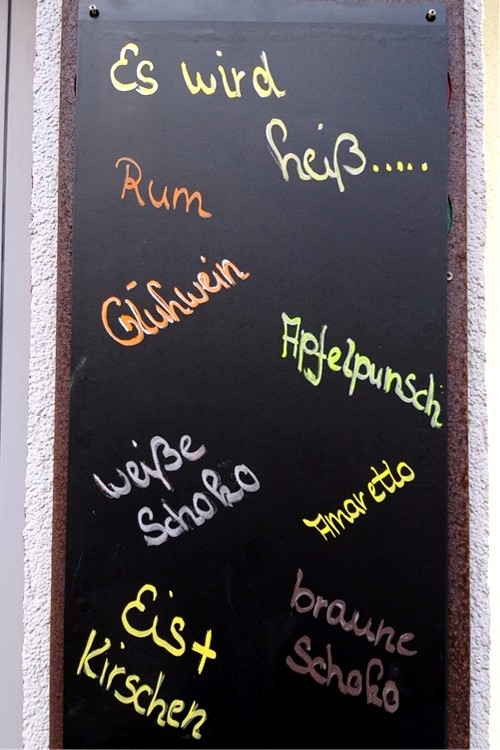 Es wird
heiß.....
Rum
Glühwein
Apfelpunsch
weiße
Schoko
Amaretto
Eis+
Kirschen
braune
Schoko